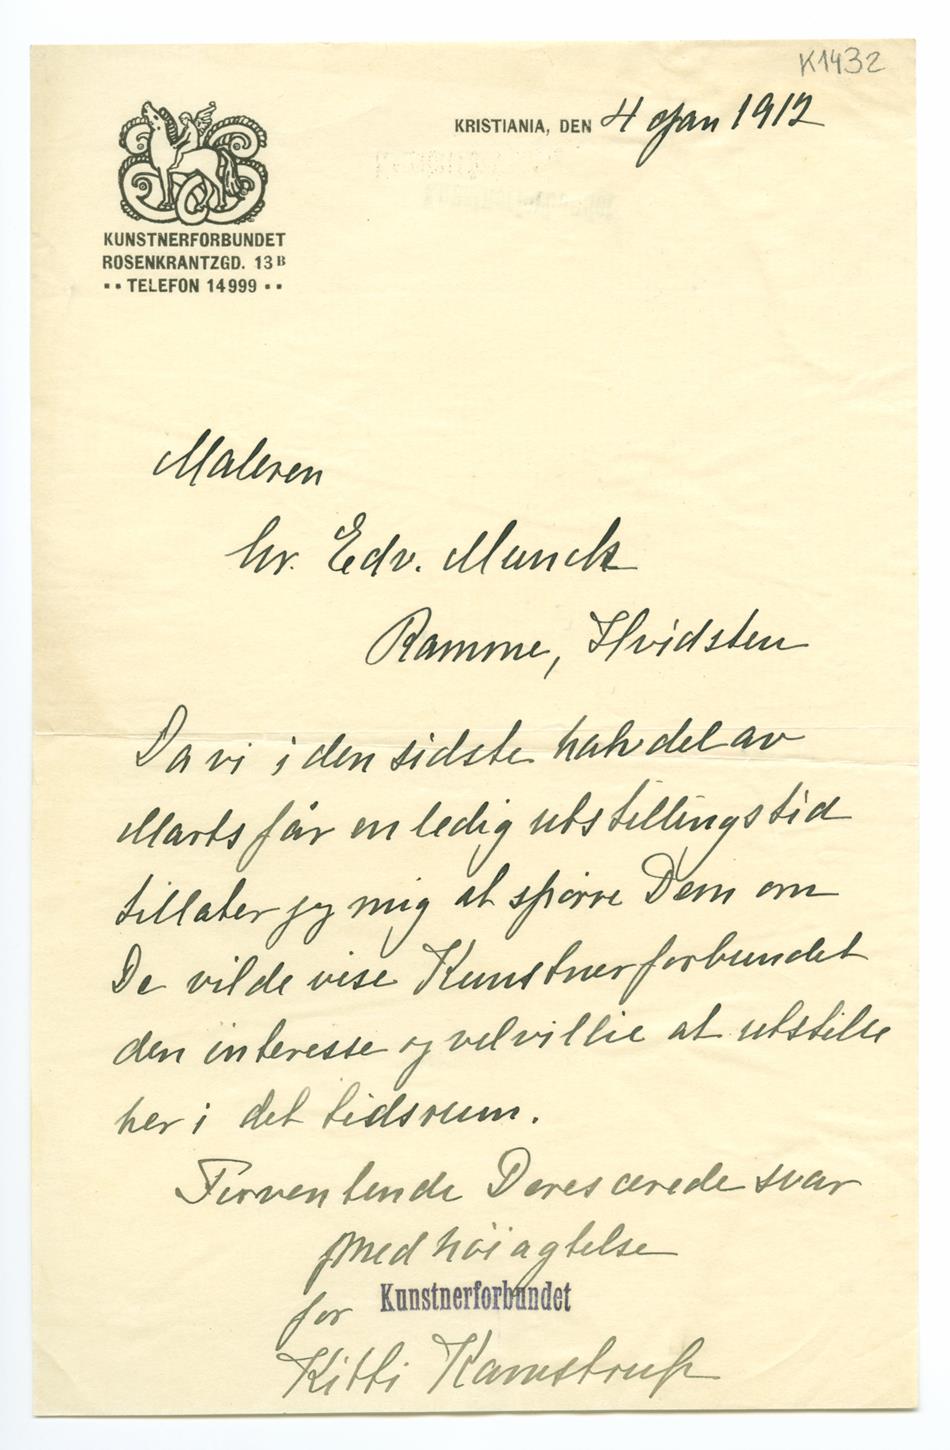 K1432
KRISTIANIA, DEN 4 Jan 1912
KUNSTNERFORBUNDET
ROSENKRANTZGD. 13B
·· TELEFON 14999 ··
Maleren
hr. Edv. Munch
Ramme, Hvidsten
Da vi i den sidste halvdel av
Marts får en ledig utstillingstid
tillater jeg mig at spörre Dem om
De vilde vise Kunstnerforbundet
den interesse og velvillie at utstille
her i det tidsrum.
Forventende Deres ærede svar
med höiagtelse
for Kunstnerforbundet
Kitti Kamstrup